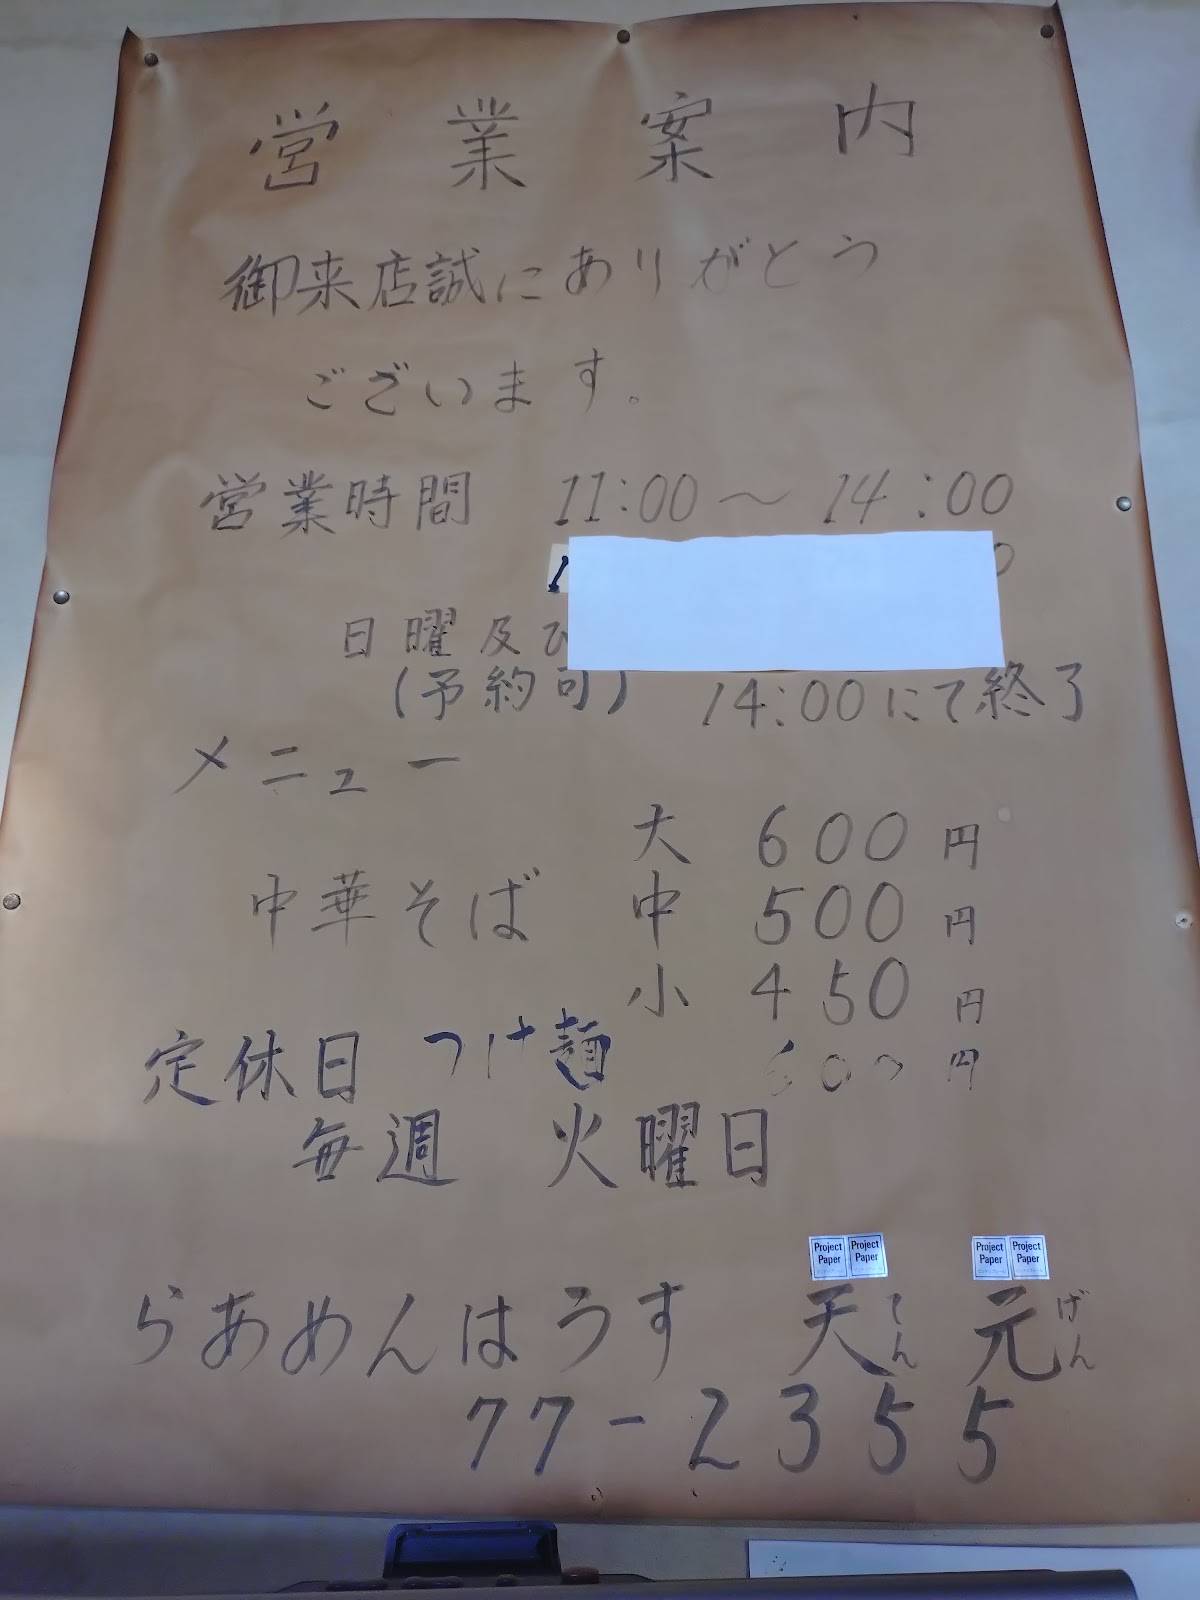 営業案内
御来店誠にありがとう
ございます。
営業時間 11:00～14:00
日曜及び
(予約可) 14:00にて終了
メニュー
大 600円
中華そば 中 500円
小 450円
つけ麺 600円
定休日
毎週 火曜日
Project Paper Project Paper
らあめんはうす 天元
てん げん
77-2355